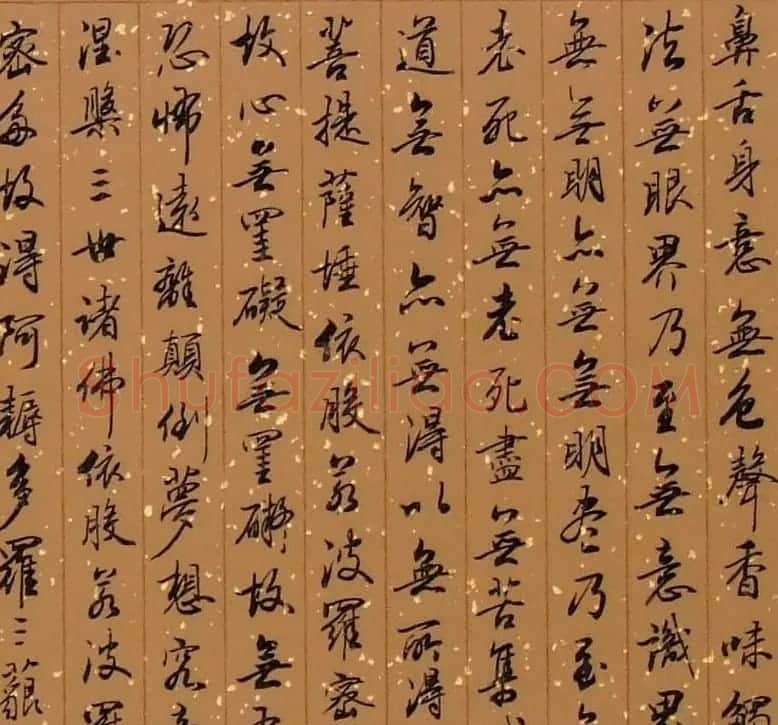 鼻舌身意無色聲香味觸
法無眼界乃至無意識界
無無明亦無無明盡乃至
老死亦無老死盡無苦集
道無智亦無得以無所得
菩提薩埵依般若波羅密
故心無罣礙無罣礙故無
恐怖遠離顛倒夢想究
涅槃三世諸佛依般若波羅
密多故得阿耨多羅三藐
shufaziliao.COM